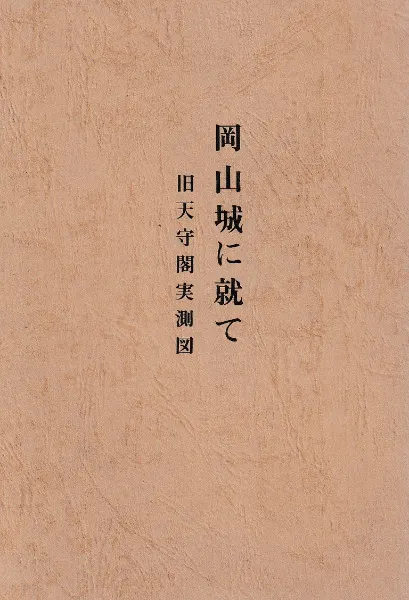 岡山城に就て
旧天守閣実測図